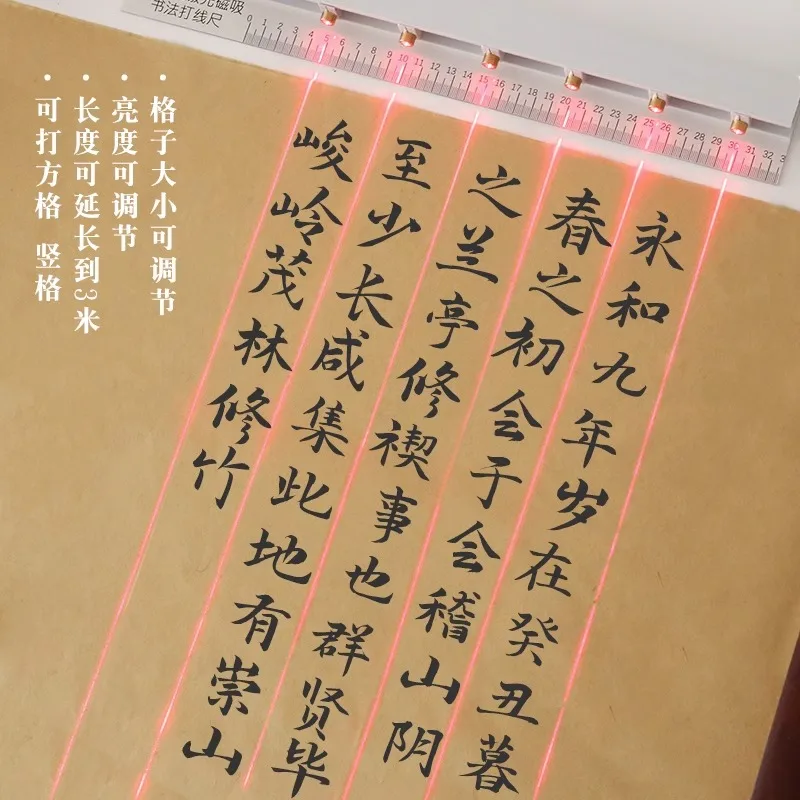 光磁吸
书法打线尺
0 1 2 3 4 5 6 7 8 9 10 11 12 13 14 15 16 17 18 19 20 21 22 23 24 25 26 27 28 29 30 31 32
· 格子大小可调节
· 亮度可调节
· 长度可延长到3米
· 可打方格 竖格
永和九年岁在癸丑暮
春之初会于会稽山阴
之兰亭修禊事也群贤毕
至少长咸集此地有崇山
峻岭茂林修竹